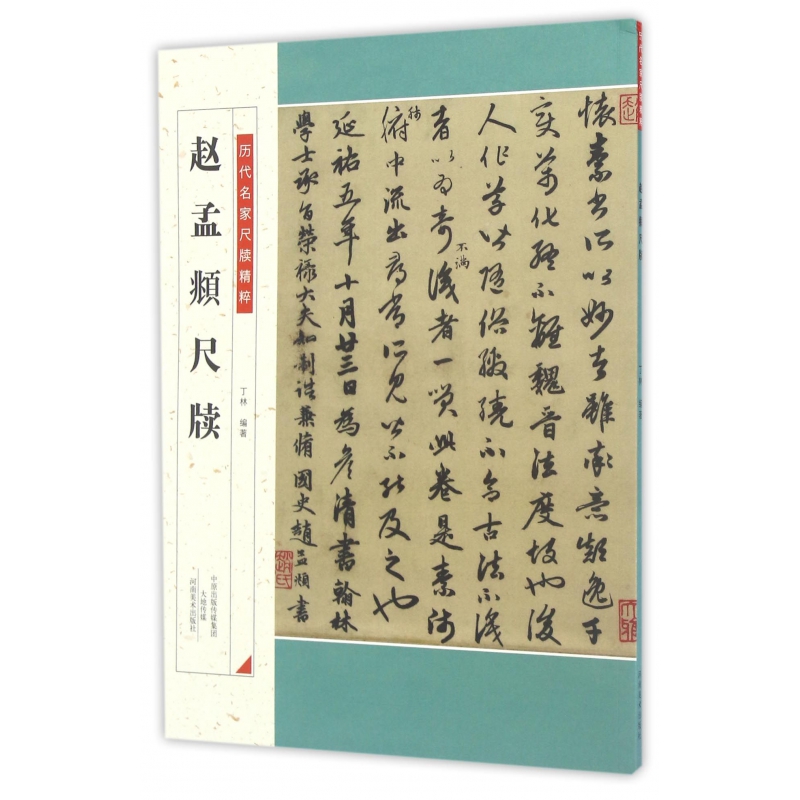 历代名家尺牍精粹
赵孟頫尺牍
丁林 编著
中原出版传媒集团
大地传媒
河南美术出版社
懷素書所以妙者雖率意顛逸千
變萬化終不離魏晉法度故也後
人作草皆隨俗繳繞不合古法不識
者以為奇不滿識者一笑此卷是素師
肺腑中流出尋常所見皆不能及之也
延祐五年十月廿三日為彥清書翰林
學士承旨榮祿大夫知制誥兼脩國史趙孟頫書
趙氏
赵孟頫尺牍
丁林 编著